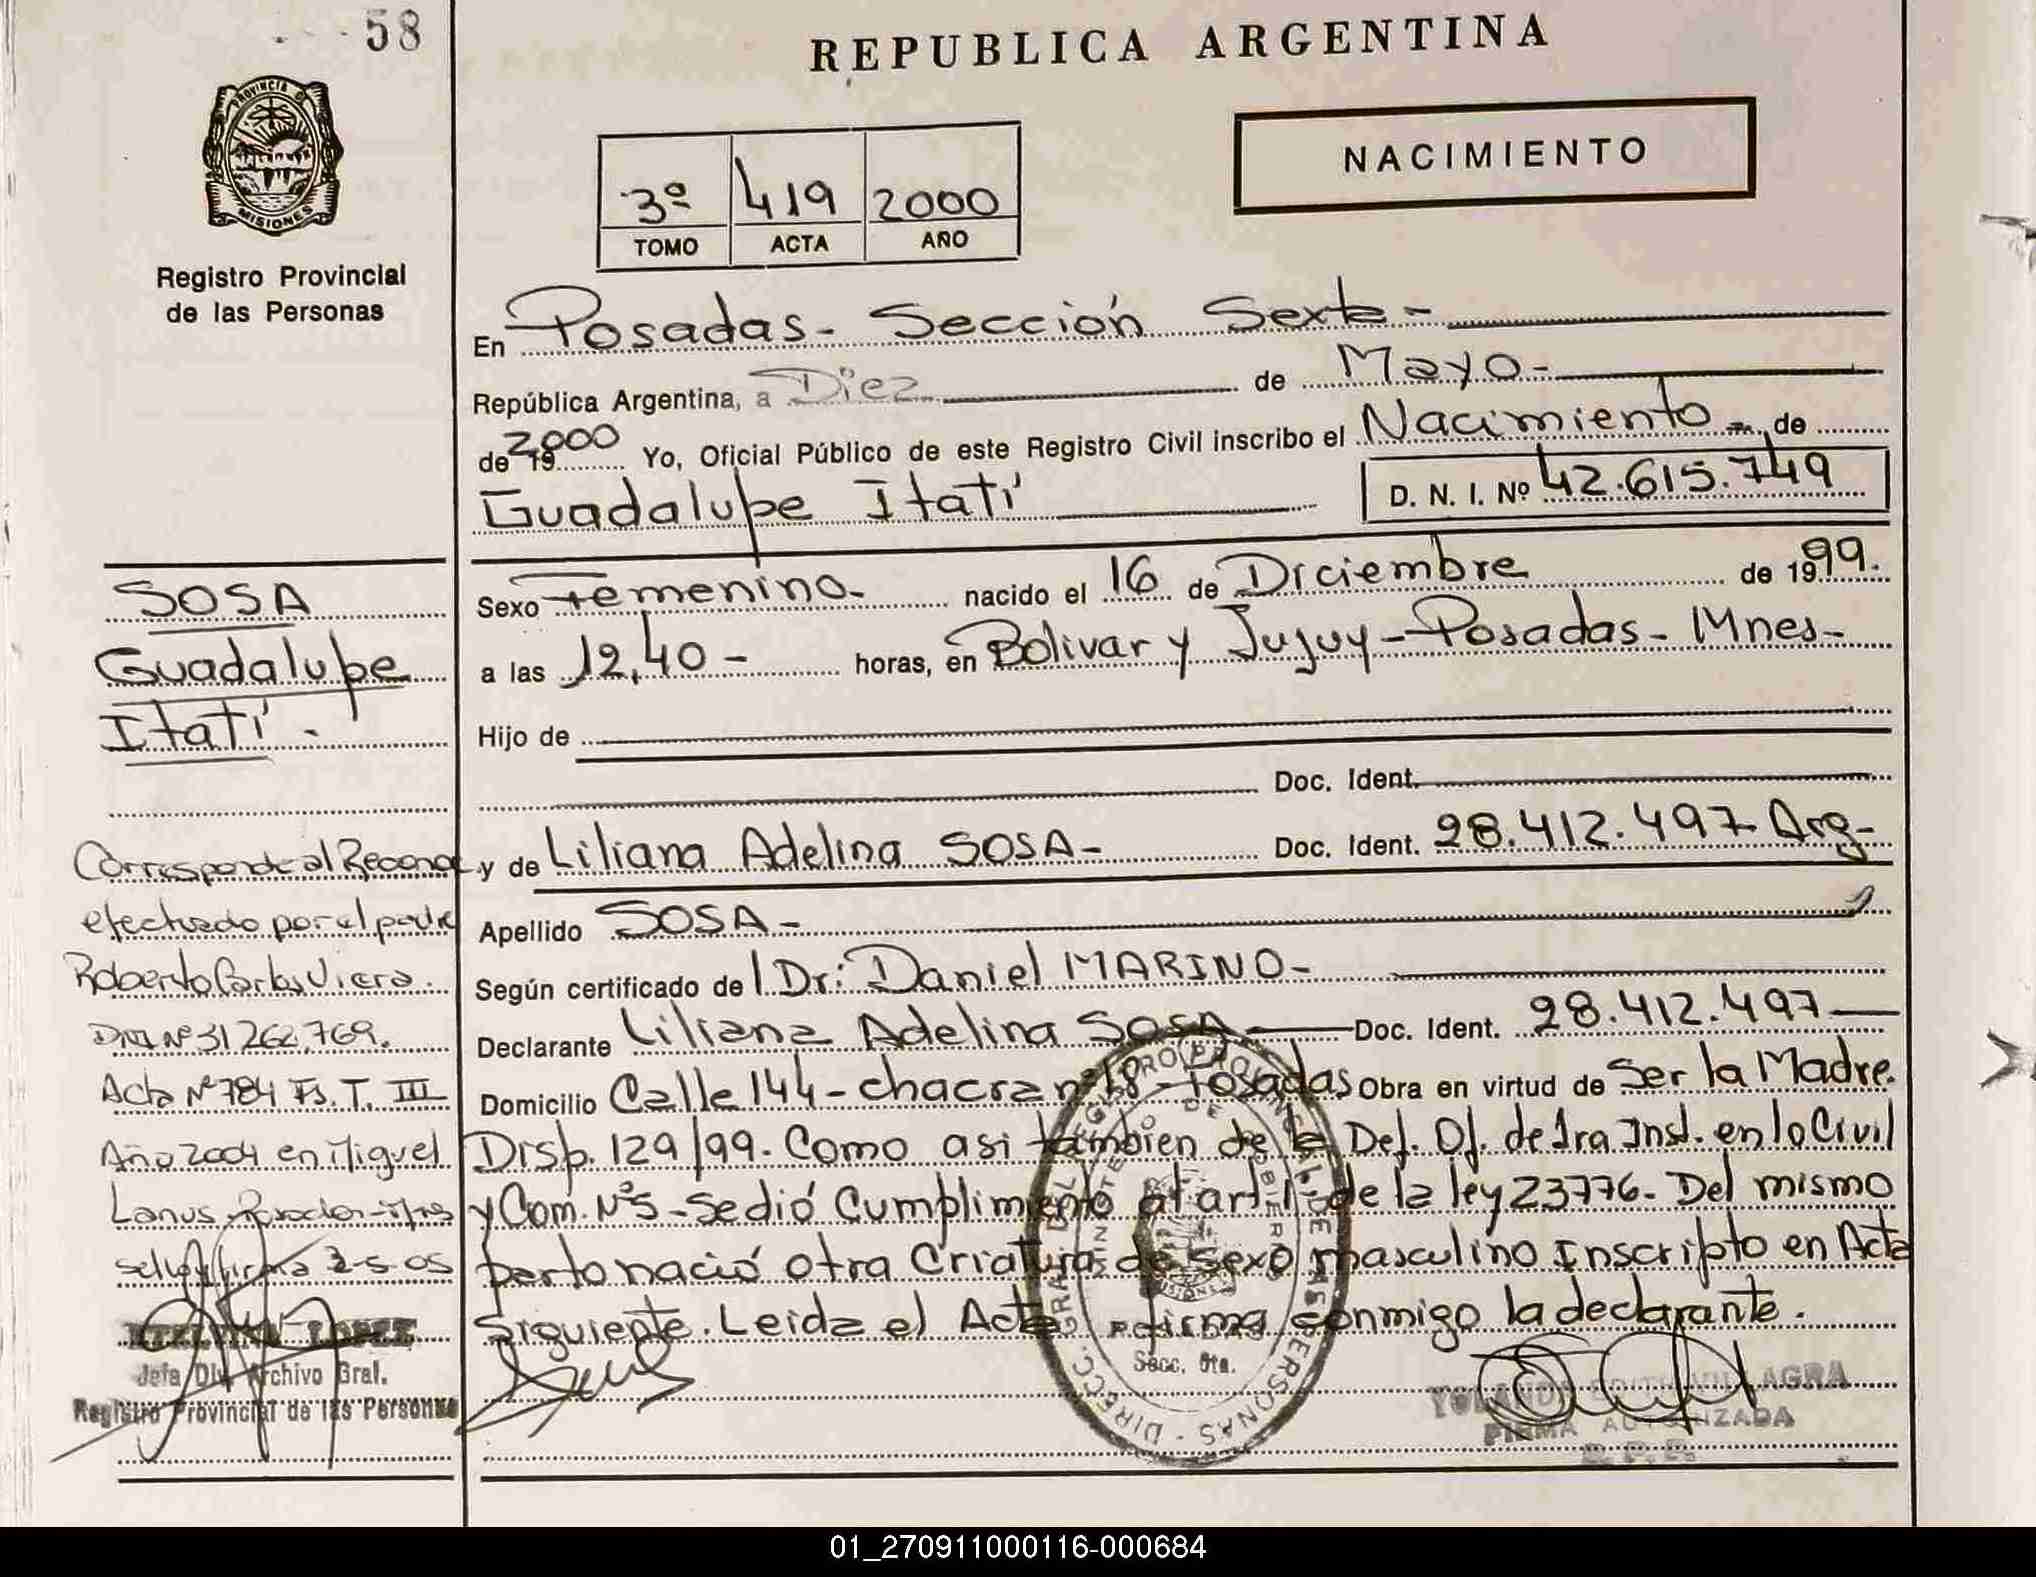 58
REPUBLICA ARGENTINA
PROVINCIA DE
MISIONES
Registro Provincial
de las Personas
NACIMIENTO
3º 419 2000
TOMO ACTA AÑO
En Posadas - Sección Sexta -
República Argentina, a Diez de Mayo -
de 19 2000 Yo, Oficial Público de este Registro Civil inscribo el Nacimiento de
Guadalupe Itatí
D. N. I. Nº 42.615.749
Sexo Femenino - nacido el 16 de Diciembre de 1999.
a las 12,40 - horas, en Bolivar y Jujuy - Posadas - Mnes -
Hijo de
Doc. Ident.
y de Liliana Adelina SOSA - Doc. Ident. 28.412.497 Arg -
Apellido SOSA -
Según certificado del Dr: Daniel MARINO -
Declarante Liliana Adelina SOSA Doc. Ident. 28.412.497
Domicilio Calle 144 - chacra nº 18 - Posadas Obra en virtud de Ser la Madre.
Disp. 129/99. Como asi tambien de la Def. Of. de 1ra Inst. en lo Civil
y Com. Nº5 - Se dió Cumplimiento al art. 1 de la ley 23776 - Del mismo
parto nació otra Criatura de sexo masculino Inscripto en Acta
Siguiente. Leida el Acta firma conmigo la declarante.
SOSA
Guadalupe
Itatí -
Corresponde al Reconoc
efectuado por el padre
Roberto Carlos Viera.
DNI Nº 31.262.769.
Acta Nº 784 Fs. T. III
Año 2004 en Miguel
Lanus - Posadas - Mnes
sello y firma 2-5-05
LOPEZ
Jefa Div. Archivo Gral.
Registro Provincial de las Personas
DIRECC. GRAL. DEL REGISTRO PROVINCIAL DE LAS PERSONAS
MINISTERIO DE GOBIERNO
MISIONES
Secc. 6ta.
YOLANDA EDITH VILLAGRA
FIRMA AUTORIZADA
R. P. P.
01_270911000116-000684